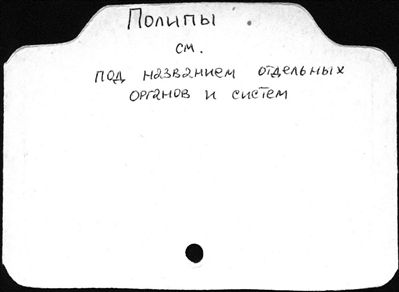 Полипы.
см.
под названием отдельных
органов и систем